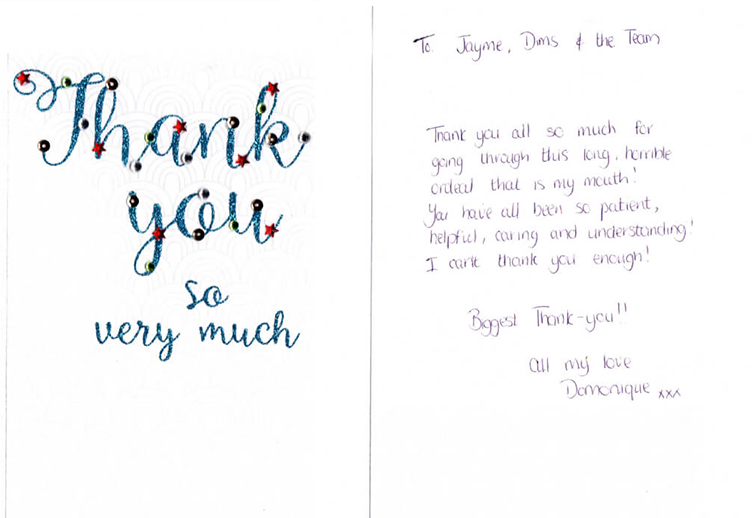 Thank
you
so
very much
To. Jayme, Dims & the Team
Thank you all so much for
going through this long, horrible
ordeal that is my mouth!
You have all been so patient,
helpful, caring and understanding!
I can't thank you enough!
Biggest Thank-you!!
all my love
Domonique xxx